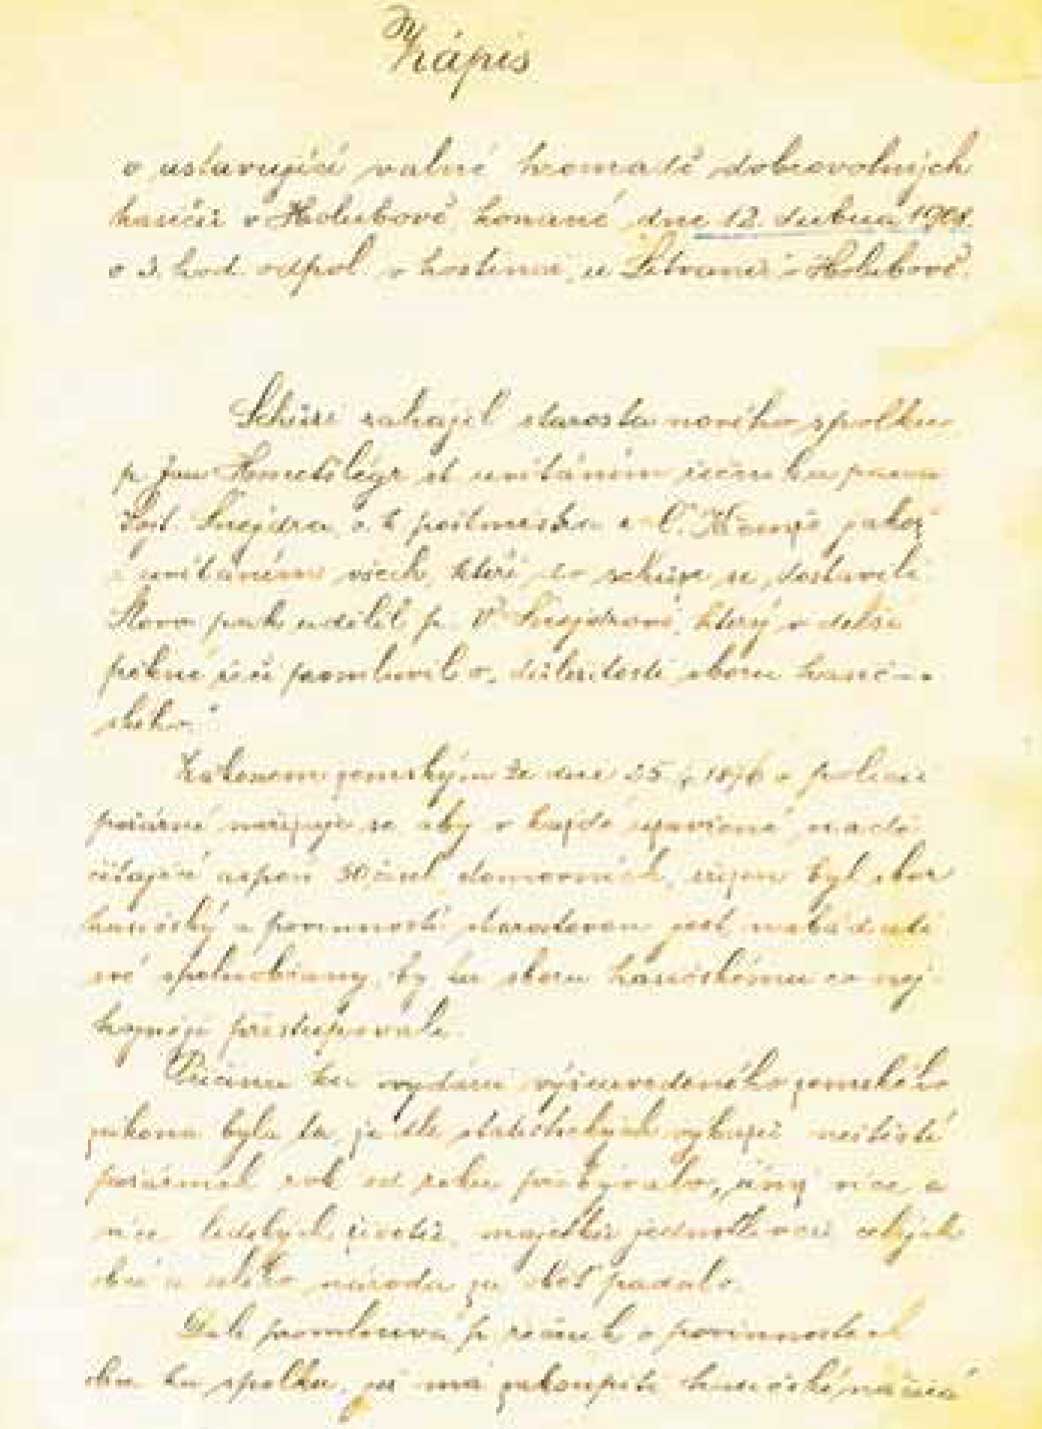 Zápis
o ustavující valné hromadě dobrovolných
hasičů v Holubově, konané dne 12. dubna 1908.
o 3. hod. odpol. v hostinci u v Holubově.
Schůzi zahájil starosta nového spolku
p. Jan uvítáním řečníka pana
Vojt. Šnejdra, c. k. poštmistra z Č. jakož
i uvítáním všech, kteří do schůze se dostavili
Slovo pak udělil p. V. Šnejdrovi, který v delší
pěkné řeči promluvil o důležitosti sboru hasič-
ského.
Zákonem zemským ze dne 25/5 1876 o policii
požárné nařizuje se aby v každé uzavřené osadě
čítající aspoň 50 čísel domovních, zřízen byl sbor
hasičský a povinností starostovou jest nabádati
své spoluobčany, by ku sboru hasičskému co nej-
hojněji přistupovali.
Příčinu ku vydání výšeuvedeného zemského
zákona byla ta, že dle statistických výkazů neštěstí
požárních rok od roku přibývalo, čímž více a
více lidských životů, majetků jednotlivců celých
obcí a celého národa za oběť padalo.
Dále promlouvá p. řečník o povinnostech
obce ku spolku, jež má zakoupiti hasičské náčiní